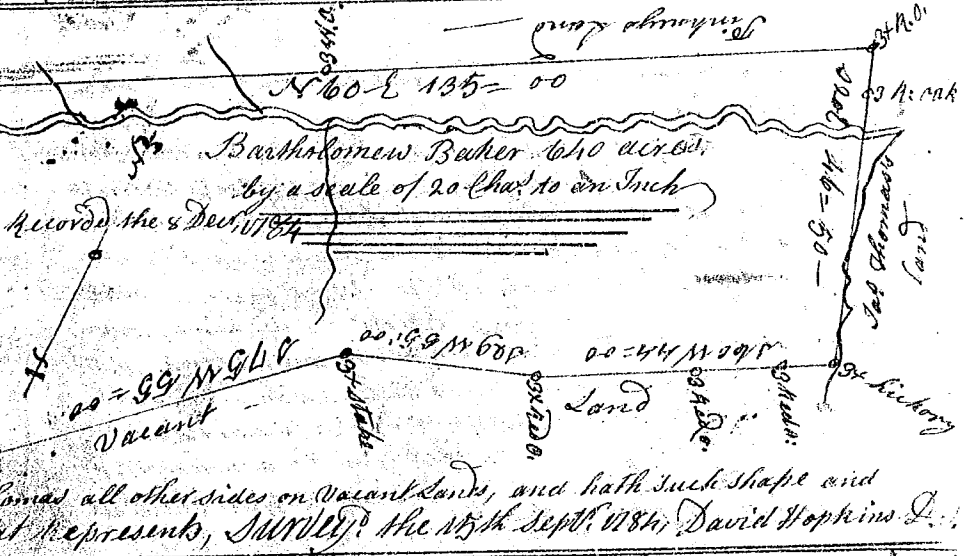 Land
3x R.O.
3x R.O.
N 60 E 135 = 00
3 R: oak
46 = 50
Bartholomew Baker 640 acres.
by a scale of 20 Chas. to an Inch
Recorded the 8 Decr, 1784
Jas Thomass
land
S 75 W 55 = 00
S 89 W 55: 00
S 60 W 44 = 00
Vacant
3x Stake
3x Red O.
Land
3 Red O.
3 Red o:
3x hickory
all other sides on Vacant Lands, and hath such shape and
Represents, Survey'd the 15th Septr. 1784, David Hopkins D.